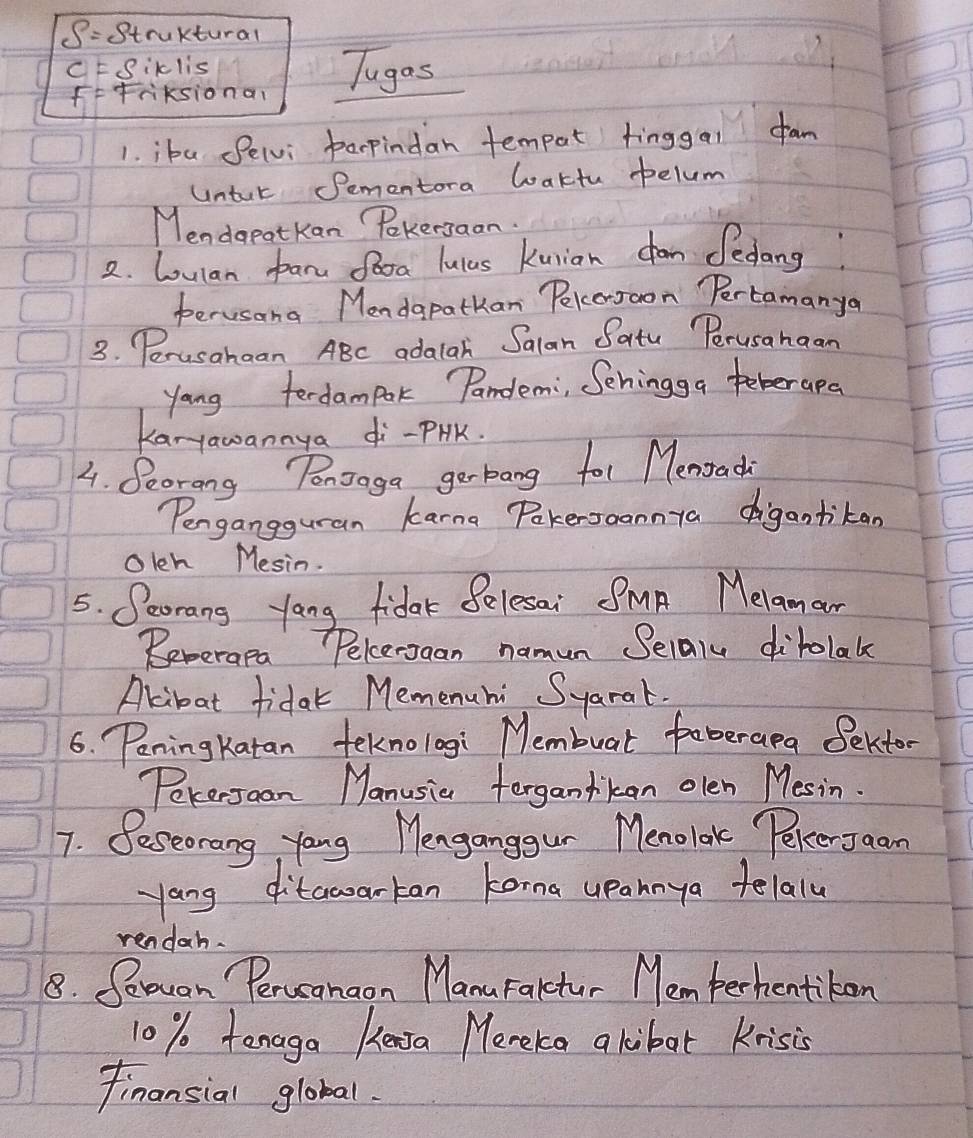 S = Struktural
C = Siklis
F = Friksional
Tugas
1. ibu Selvi berpindah tempat tinggal dan
untuk Sementara Waktu belum
Mendapatkan Pekerjaan.
2. Wulan baru saja lulus kuliah dan Sedang
berusaha Mendapatkan Pekerjaan Pertamanya
3. Perusahaan ABC adalah Salah Satu Perusahaan
yang terdampak Pandemi, Sehingga beberapa
karyawannya di-PHK.
4. Seorang Penjaga gerbang tol Menjadi
Pengangguran karna Pekerjaannya digantikan
oleh Mesin.
5. Seorang yang tidak Selesai SMA Melamar
Beberapa Pekerjaan namun Selalu ditolak
Akibat tidak Memenuhi Syarat.
6. Peningkatan teknologi Membuat beberapa Sektor
Pekerjaan Manusia tergantikan oleh Mesin.
7. Seseorang yang Menganggur Menolak Pekerjaan
yang ditawarkan karna upahnya telalu
rendah.
8. Sebuah Perusahaan Manufaktur Memberhentikan
10% tenaga kerja Mereka akibat Krisis
Finansial global.